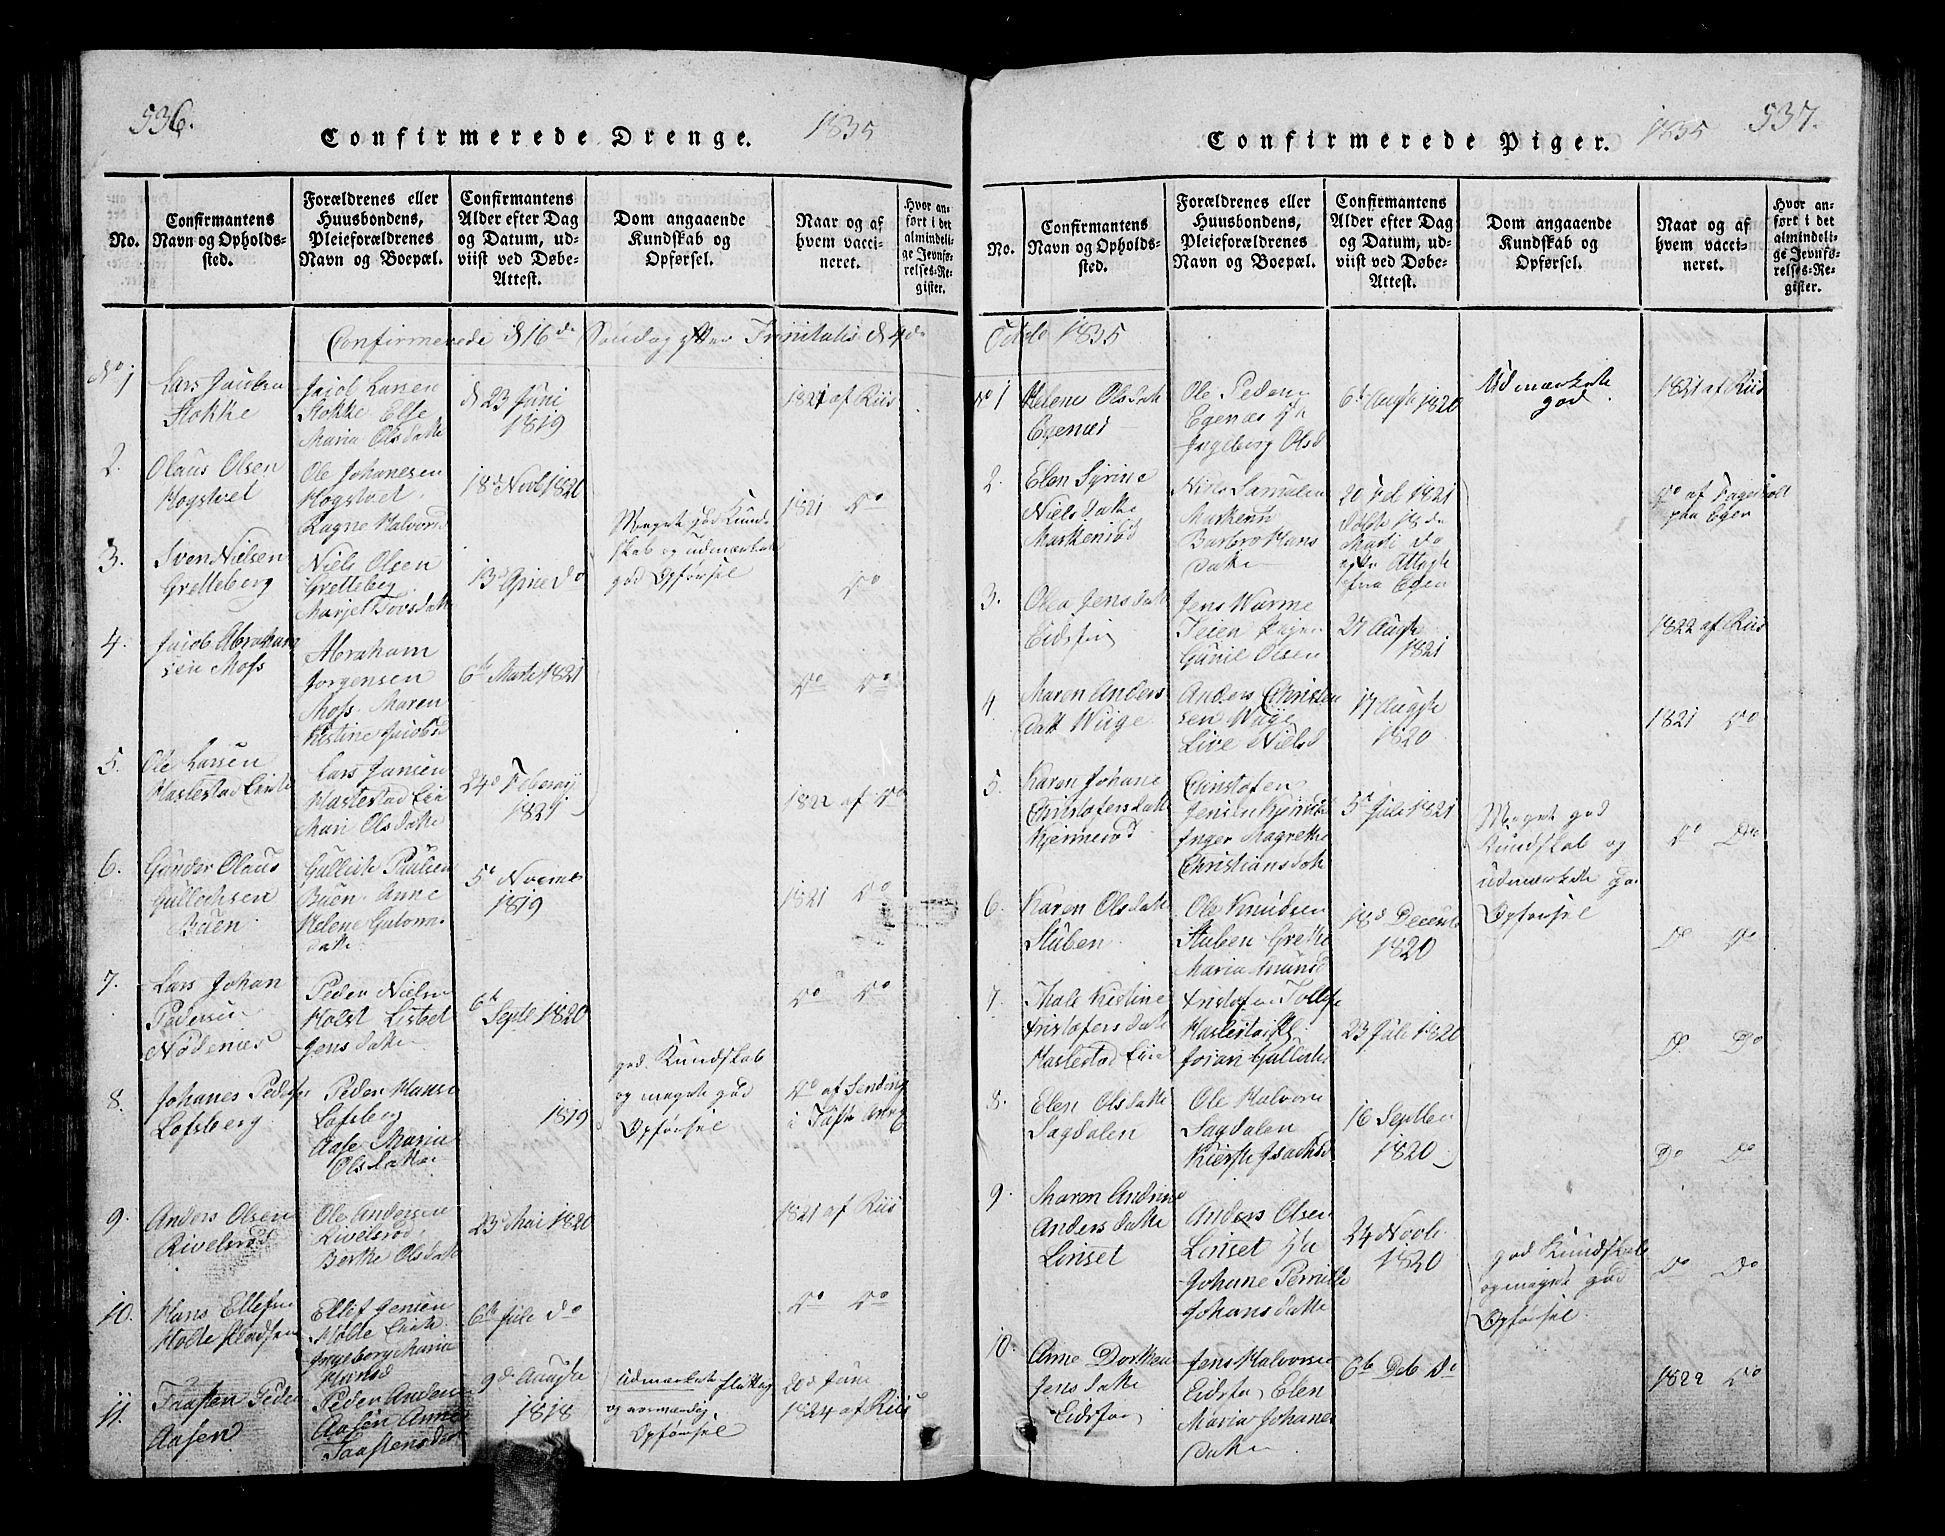 536.
Confirmerede Drenge.
1835
No.
Confirmantens Navn og Opholds-sted.
Forældrenes eller Huusbondens, Pleieforældrenes Navn og Boepæl.
Confirmantens Alder efter Dag og Datum, ud-viist ved Døbe-Attest.
Dom angaaende Kundskab og Opførsel.
Naar og af hvem vacci-neret.
Hvor an-ført i det almindeli-ge Jevnfø-relses-Re-gister.
Confirmerede d 16de Søndag efter Trinitatis d 4de
No 1
Lars Jacobsen
Stokke
Jacob Larsen
Stokke Else
Maria Olsdatte
d 23 Juni
1819
1821 af Riis
2.
Olaus Olsen
Hogstvet
Ole Johanesen
Hogstvet
Ragne Halvorsd
18d Novb 1820
1821 Do
Meget god Kund-
skab og udmærket
god Opførsel
3.
Sven Nielsen
Gretteberg
Niels Olsen
Gretteberg
Marje Tovsdatte
13d Do
Do
4.
Jacob Abraham
sen Moss
Abraham
Jorgensen
Moss Maren
Kistine Jacobsd
6te Marti 1821
Do Do
5.
Ole Larsen
Haslestad Eie
Lars Jansen
Haslestad Eie
Mari Olsdatte
24d Feberary
1821
1822 af Do
6.
Gunder Olaus
Gullichsen
Buen
Gulliche Paulsen
Buen Anne
Helene Gulom
datte
5d Novemb
1819
1821 Do
7.
Lars Johan
Pedersen
Nødenæs
Peder Nielsen
Holst Lisbet
Jensdatte
6te
Septe 1820
Do Do
god Kundskab
og meget god
Opførsel
8.
Johanes Peders
Lofsberg
Peder Hanse
Lofsberg
Aase Maria
Olsdatte
1819
Do af
i
9.
Anders Olsen
Rivelsrød
Ole Andersen
Rivelsrød
Berthe Olsdatte
23d Mai 1820
1821 af Riis
10.
Hans Ellefsen
Holte
Ellef Jensen
Holte
Ingeborg Maria
6te Jule Do
Do Do
11.
Taasten Peder
Aasen
Peder Anders
Aasen Anne
Taastensdat
9d Auguste
1818
udmærket
og
Opførsel
20d June
1824 af Riis
537.
Confirmerede Piger.
1835
No.
Confirmantens Navn og Opholds-sted.
Forældrenes eller Huusbondens, Pleieforældrenes Navn og Boepæl.
Confirmantens Alder efter Dag og Datum, ud-viist ved Døbe-Attest.
Dom angaaende Kundskab og Opførsel.
Naar og af hvem vacci-neret.
Hvor an-ført i det almindeli-ge Jevnfø-relses-Re-gister.
Octobr 1835
No 1
Helene Olsdatt
Egenæs
Ole Pedersen
Egenæs
Ingeborg Olsd
6te Augte 1820
Udmærkete
god
1821 af Riis
2.
Elen Syrine
Nielsdatte
Markerud
Niels Samuelen
Barbro Hans
datte
20 Feb 1821
Døbte 18de
Marti do
efter Attest
fra Eger
Do af Fagerholt
paa Eger
3.
Olea Jensdatte
Eidsfos
Jens Warme
Gunil Olsen
27 Augte
1821
1822 af Riis
4.
Maren Anders
datt Wiige
Anders Christen
sen Wiige
Live Nielsd
17 Augte
1820
1821 Do
5.
Karen Johane
Christofersdatte
Kjennerød
Christofer
Jensen
Inger Magrethe
Christiansdatte
5te Juli 1821
Meget god
Kundskab og
udmærkete go
Opførsel
Do Do
6.
Karen Olsdatte
Stuben
Ole Knudsen
Stuben Grethe
Maria
18d Decemb
1820
Do Do
7.
Male Kistine
Kristofersdatte
Haslestad Eie
Kristofer Tollefs
Haslestad
Joran Gulliks
23 Jule 1820
Do Do
8.
Elen Olsdatte
Sagdalen
Ole Halvorse
Sagdalen
Kierste
16 Septber
1820
Do Do
9.
Maren Andrine
Andersdatte
Linset
Anders Olsen
Linset
Johane Pernille
Johansdatte
24 Novb.
1820
god Kundskab
og meget god
Opførsel
Do Do
10.
Anne Dorthea
Jensdatte
Eidsfos
Jens Halvorsen
Eidsfos Elen
Maria Johanes
datte
6te Deb Do
1822 Do